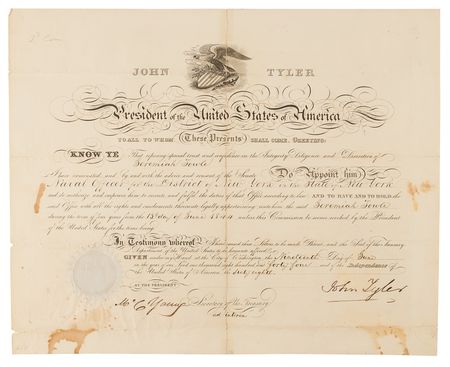 JOHN TYLER
President of the United States of America
TO ALL TO WHOM These Presents SHALL COME, GREETING:
KNOW YE That reposing special trust and confidence in the Integrity Diligence and Discretion of
Jeremiah Towle
I have nominated, and by and with the advice and consent of the Senate Do Appoint him
Naval Officer for the District of New York in the State of New York
and do authorize and empower him to execute and fulfil the duties of that Office according to law. AND TO HAVE AND TO HOLD the
said Office with all the rights and emoluments thereunto legally appertaining unto him the said Jeremiah Towle
during the term of four years from the 13th day of June 1844 unless this Commission be sooner revoked by the President
of the United States for the time being.
In Testimony whereof I have caused these Letters to be made Patent, and the Seal of the Treasury
Department of the United States to be hereunto affixed.
GIVEN under my Hand, at the City of Washington, the Nineteenth Day of June
in the year of our Lord one thousand eight hundred and forty four and of the Independence of
the United States of America the sixty eighth
BY THE PRESIDENT
John Tyler
McC Young Secretary of the Treasury
ad interim